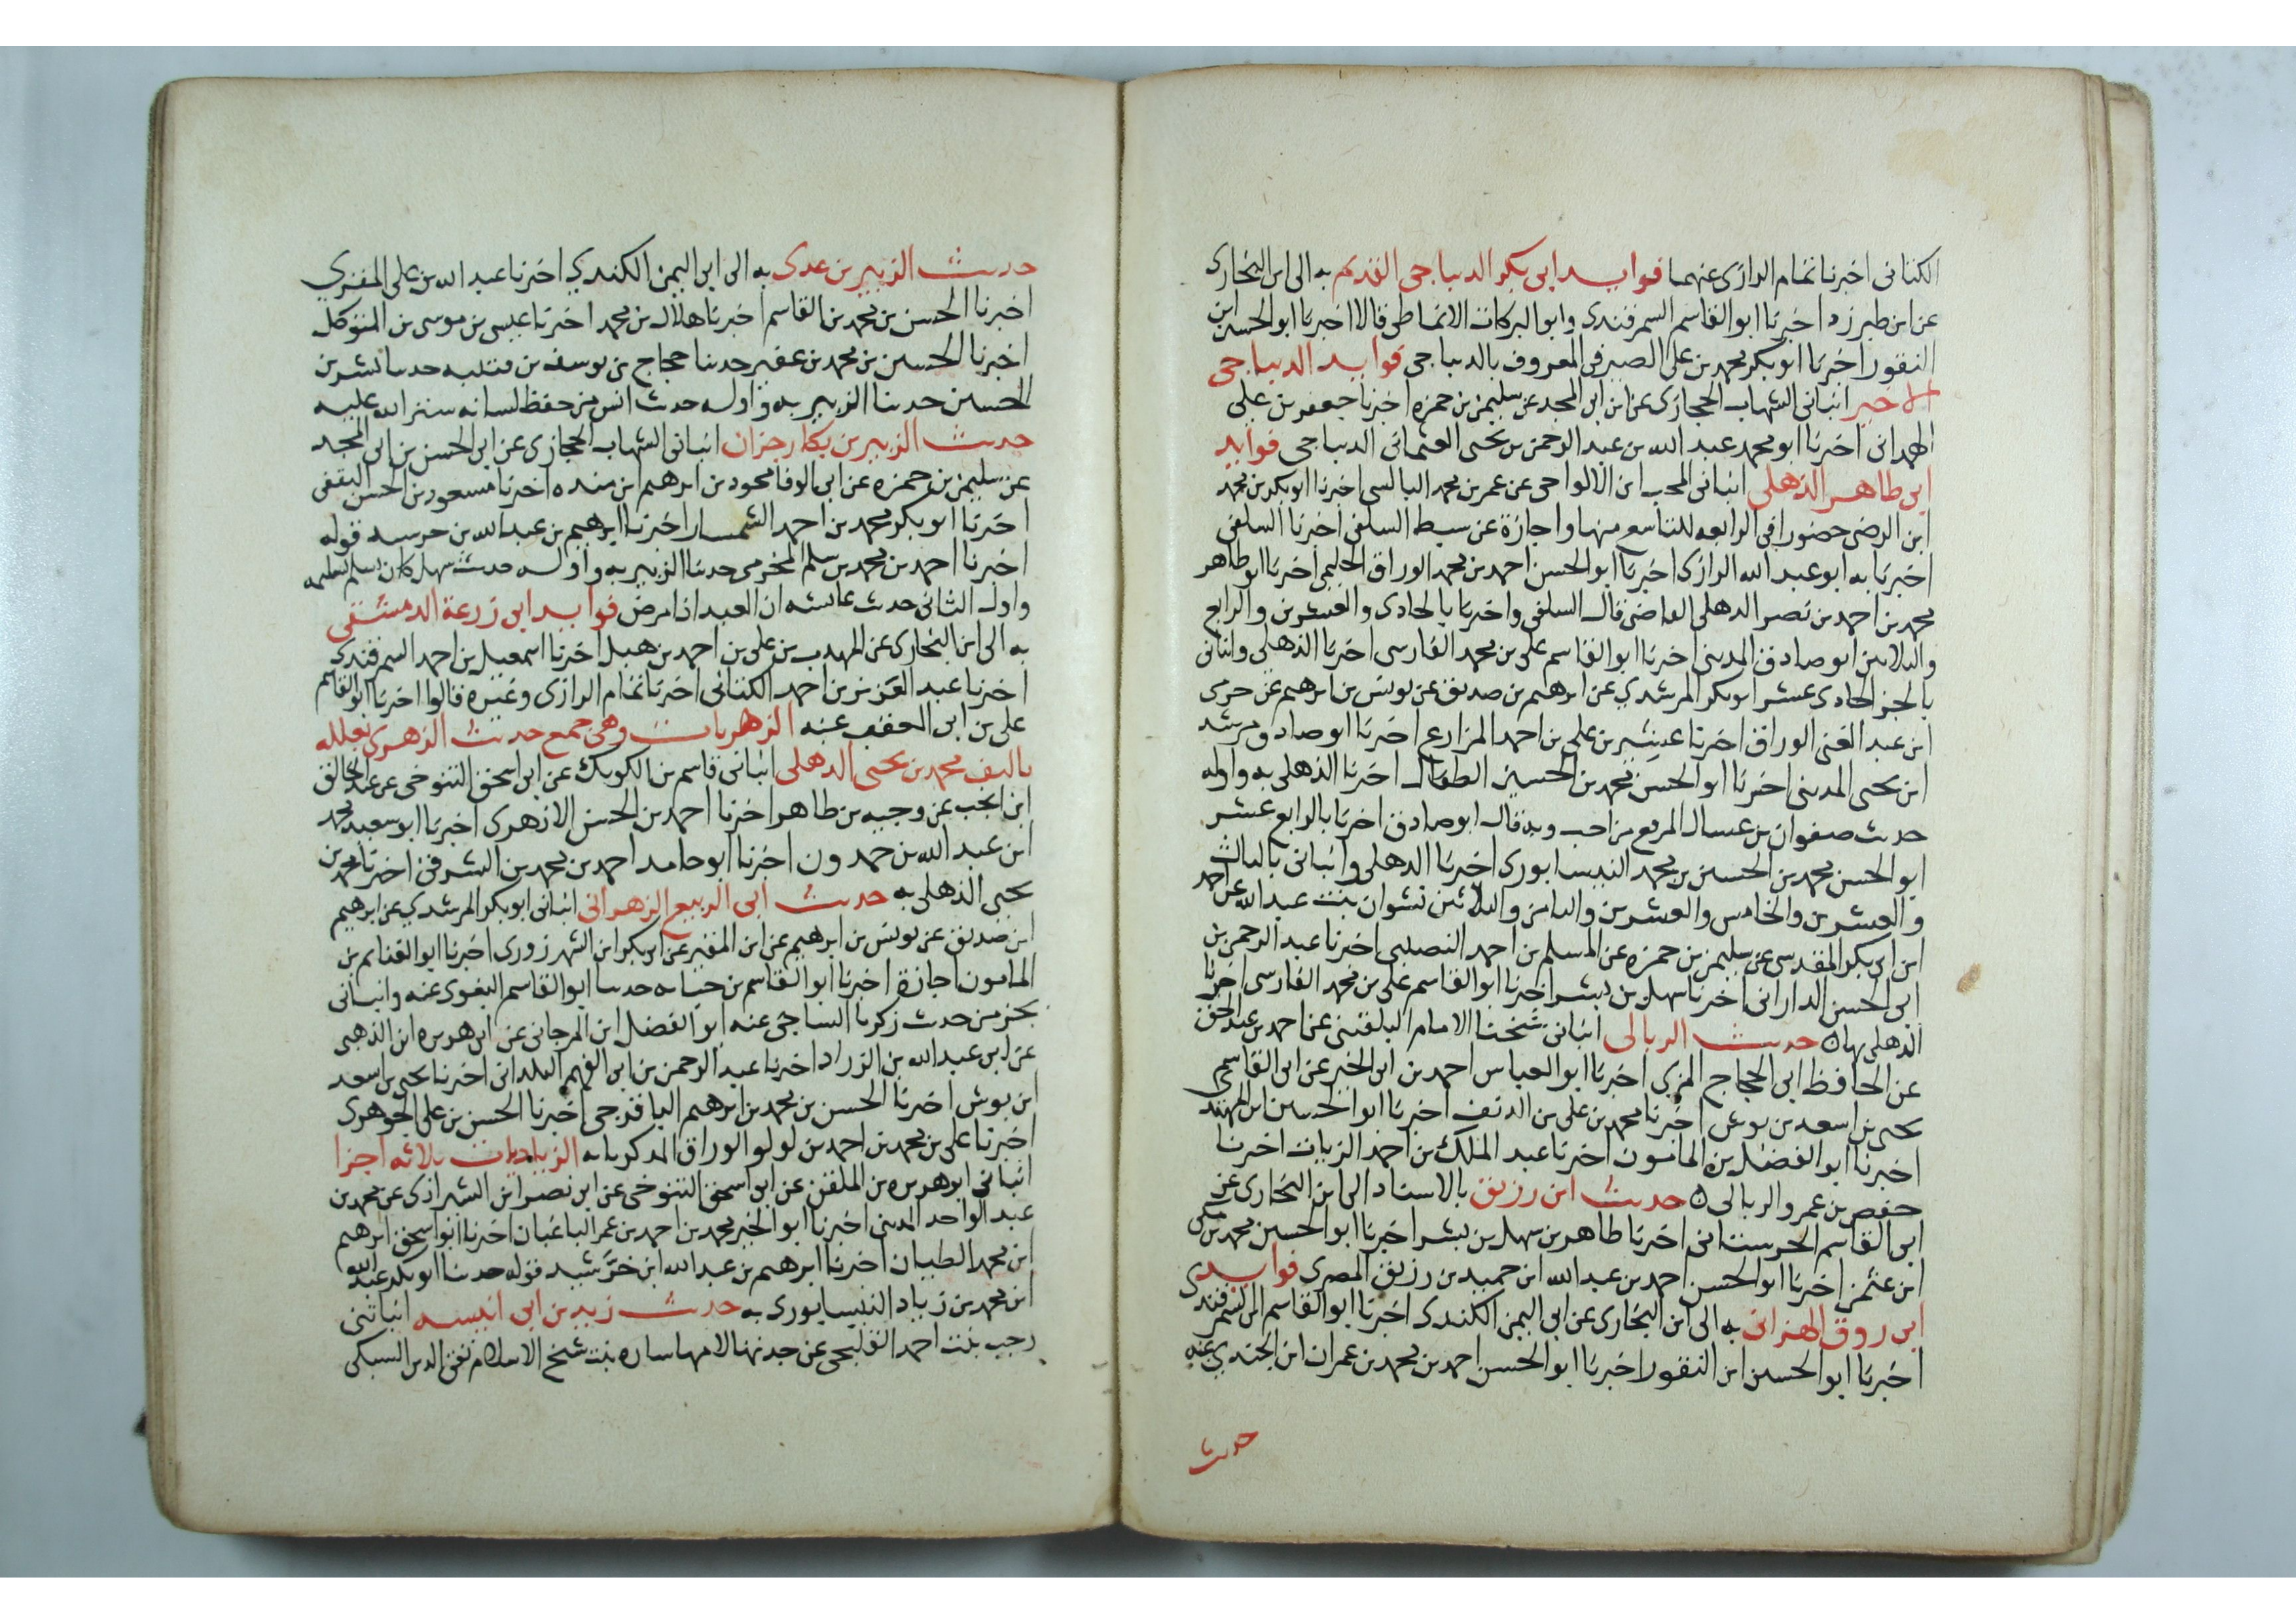 الكتانى اخبرنا تمام الرازى عنهما فوايد ابى بكر الديباجى القديم به الى ابن البخارى
عن ابن طبرزد اخبرنا ابو القاسم السمرقندى وابو البركات الانماطى قالا اخبرنا ابو الحسين ابن
النقور اخبرنا ابو بكر محمد بن على الصيرفى المعروف بالديباجى فوايد الديباجى
الاخير انبانى الشهاب الحجازى عن ابن ابى المجد عن سليمن بن حمزه اخبرنا جعفر بن على
الهمدانى اخبرنا ابو محمد عبد الله بن عبد الرحمن بن يحيى العثمانى الديباجى فوايد
ابى طاهر الذهلى انبانى المحب ابن الالواحى عن عمر بن محمد البالسى اخبرنا ابو بكر بن محمد
ابن الرضى حضورا فى الرابعه للتاسع منها واجازة عن سبط السلفى اخبرنا السلفى
اخبرنا به ابو عبد الله الرازى اخبرنا ابو الحسن احمد بن محمد الوراق الحليمى اخبرنا ابو طاهر
محمد بن احمد بن نصر الدهلى القاضى قال السلفى واخبرنا بالحادى والعشرين والرابع
والثلاثين ابو صادق المدينى اخبرنا ابو القاسم على بن محمد الفارسى اخبرنا الذهلى وانبانى
بالجز الحادى عشر ابو بكر المرشدي عن ابرهيم بن صديق عن يونس بن ابرهيم عن حرمى
ابن عبد الغنى الوراق اخبرنا عشير بن على بن احمد المزارع اخبرنا ابو صادق مرشد
ابن يحيى المدينى اخبرنا ابو الحسن محمد بن الحسين الطفال اخبرنا الذهلى به واوله
حديث صفوان بن عسال المرء مع من احب وبه قال ابو صادق اخبرنا بالرابع عشر
ابو الحسن محمد بن الحسين بن محمد النيسابورى اخبرنا الدهلى وانبانى بالثالث
والعشرين والخامس والعشرين والثامن والثلاثين نشوان بنت عبد الله عن احمد
ابن ابى بكر المقدسى عن سليمن بن حمزه عن المسلم بن احمد النصيبى اخبرنا عبد الرحمن بن
ابى الحسن الدارانى اخبرنا سهل بن بشر اخبرنا ابو القاسم على بن محمد الفارسى اخبرنا
الذهلى بها ه حديث الربالى انبانى شيخنا الامام البلقينى عن احمد بن عبد الحق
عن الحافظ ابى الحجاج المزي اخبرنا ابو العباس احمد بن ابى الخير عن ابى القاسم
يحيى بن اسعد بن بوش اخبرنا محمد بن على بن الدنف اخبرنا ابو الحسين ابن المهتدى
اخبرنا ابو الفضل بن المامون اخبرنا عبد الملك بن احمد الزيات اخبرنا
حفص بن عمرو الربالى ه حديث ابن رزيق بالاسناد الى ابن البخارى عن
ابى القاسم الحرستانى اخبرنا طاهر بن سهل بن بشر اخبرنا ابو الحسين محمد بن مكى
ابن عثمن اخبرنا ابو الحسن احمد بن عبد الله ابن حميد بن رزيق المصرى فوايد
ابى روق الهزانى به الى ابن البخارى عن ابى اليمن الكندى اخبرنا ابو القاسم ابن السمرقندى
اخبرنا ابو الحسين ابن النقور اخبرنا ابو الحسن احمد بن محمد بن عمران ابن الجندي عنه
حديث
حديث الزبير بن عدى به الى ابى اليمن الكندي اخبرنا عبد الله بن على المقري
اخبرنا الحسن بن محمد بن القاسم اخبرنا هلال بن محمد اخبرنا عيسى بن موسى بن المتوكل
اخبرنا الحسين بن محمد بن عفير حدثنا حجاج بن يوسف بن قتيبه حدثنا بشر بن
الحسين حدثنا الزبير به واوله حديث انس من حفظ لسانه ستر الله عليه
حديث الزبير بن بكار جزان انبانى الشهاب الحجازى عن ابى الحسن بن ابى المجد
عن سليمن بن حمزه عن ابى الوفا محمود بن ابرهيم ابن منده اخبرنا مسعود بن الحسن الثقفى
اخبرنا ابو بكر محمد بن احمد السمسار اخبرنا ابرهيم بن عبد الله بن خرشيد قوله
اخبرنا احمد بن محمد بن سلم المخرمى حدثنا الزبير به واوله حديث سهل كان يسلم تسليمه
واول الثانى حديث عائشه ان العبد اذا مرض فوايد ابى زرعة الدمشقى
به الى ابن البخارى عن المهذب بن على بن احمد بن هبل اخبرنا اسمعيل بن احمد السمرقندى
اخبرنا عبد العزيز بن احمد الكتانى اخبرنا تمام الرازى وغيره قالوا اخبرنا ابو القاسم
على بن ابى العقب عنه الزهريات وهى جمع حديث الزهرى بعلله
تاليف محمد بن يحيى الذهلى انبانى قاسم بن الكويك عن ابى اسحق التنوخى عن عبد الخالق
ابن انجب عن وجيه بن طاهر اخبرنا احمد بن الحسن الازهرى اخبرنا ابو سعيد محمد
ابن عبد الله بن حمدون اخبرنا ابو حامد احمد بن محمد بن الشرقى اخبرنا محمد بن
يحيى الذهلى به حديث ابى الربيع الزهرانى انبانى ابو بكر المرشدي عن ابرهيم
ابن صديق عن يونس بن ابرهيم عن ابن المقير عن ابى بكر ابن الشهرزورى اخبرنا ابو الغنايم بن
المامون اجازة اخبرنا ابو القاسم بن حبابه حدثنا ابو القاسم البغوى عنه وانبانى
بجز من حديث زكريا الساجى عنه ابو الفضل ابن المرجانى عن ابى هريره ابن الذهبى
عن ابى عبد الله بن الزراد اخبرنا عبد الرحمن بن ابى الفهم البلدانى اخبرنا يحيى بن اسعد
ابن بوش اخبرنا الحسن بن محمد بن ابرهيم الباقرحى اخبرنا الحسن بن على الجوهرى
اخبرنا على بن محمد بن احمد بن لولو الوراق المذكور به الزياديات ثلاثه اجزا
انبانى ابو هريره بن الملقن عن ابى اسحق التنوخى عن ابى نصر ابن الشيرازى عن محمد بن
عبد الواحد المدينى اخبرنا ابو الخير محمد بن احمد بن عمر الباغبان اخبرنا ابو اسحق ابرهيم
ابن محمد الطيان اخبرنا ابرهيم بن عبد الله ابن خرشيد قوله حدثنا ابو بكر عبد الله
ابن محمد بن زياد النيسابورى به حديث زيد بن ابى انيسه انباتنى
رجب بنت احمد القليجى عن جدتها لامها ساره بنت شيخ الاسلام تقى الدين السبكى